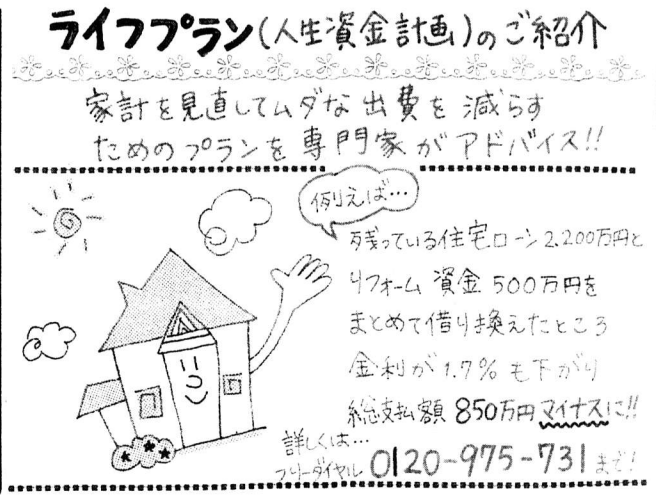 ライフプラン(人生資金計画)のご紹介
家計を見直してムダな出費を減らす
ためのプランを専門家がアドバイス!!
例えば…
残っている住宅ローン2.200万円と
リフォーム資金500万円を
まとめて借り換えたところ
金利が1.7%も下がり
総支払額850万円マイナスに!!
詳しくは…
フリーダイヤル0120-975-731まで!